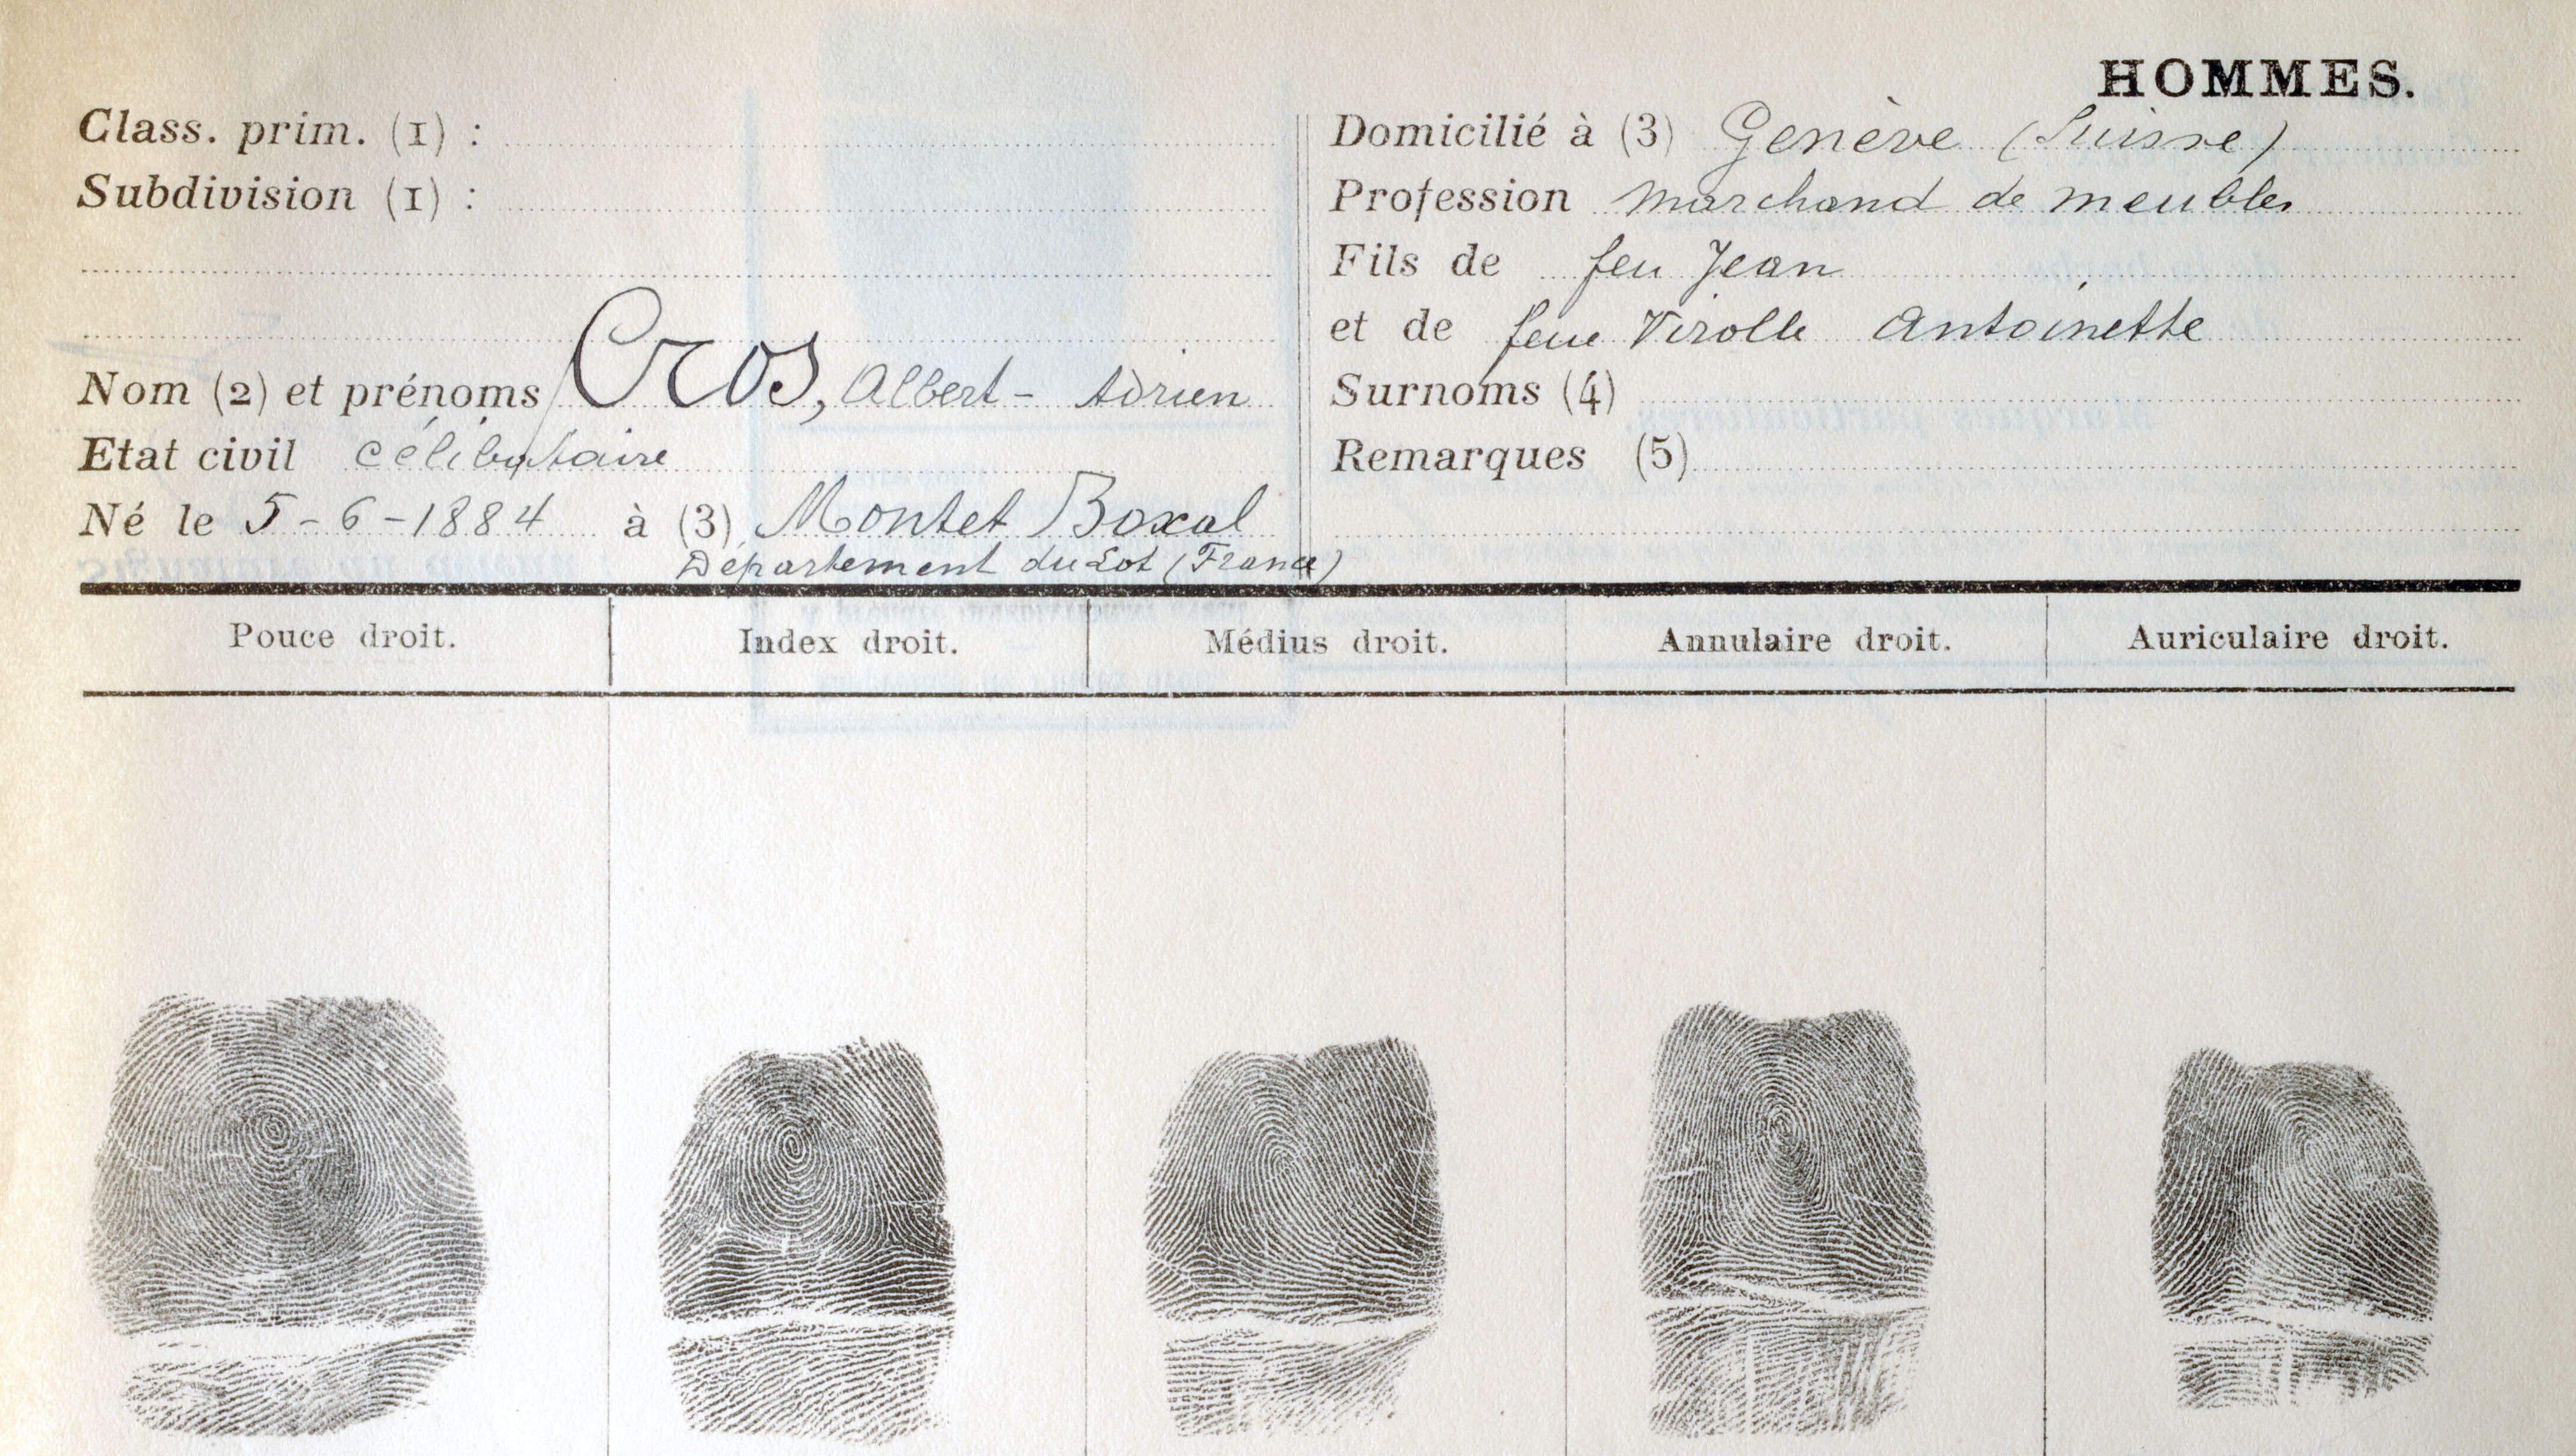 HOMMES.
Class. prim. (1) :
Subdivision (1) :
Nom (2) et prénoms Cros, Albert - Adrien
Etat civil célibataire
Né le 5-6-1884 à (3) Montet Boxal
Département du Lot (France)
Domicilié à (3) Genève (Suisse)
Profession marchand de meubles
Fils de feu Jean
et de feue Virolle Antoinette
Surnoms (4)
Remarques (5)
Pouce droit.
Index droit.
Médius droit.
Annulaire droit.
Auriculaire droit.